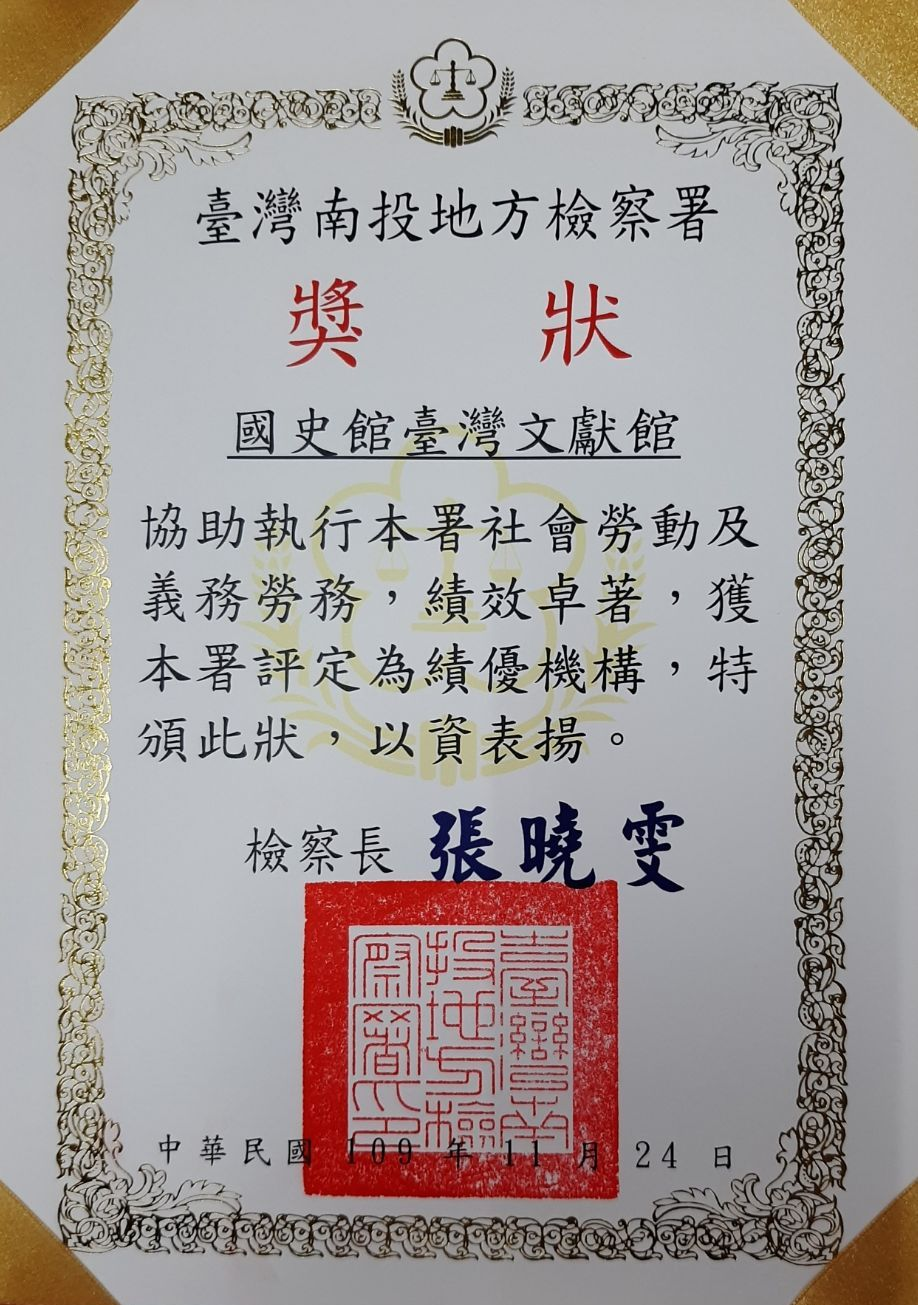 臺灣南投地方檢察署
獎狀
國史館臺灣文獻館
協助執行本署社會勞動及
義務勞務，績效卓著，獲
本署評定為績優機構，特
頒此狀，以資表揚。
檢察長 張曉雯
臺灣南投地方檢察署印
中華民國 109 年 11 月 24 日